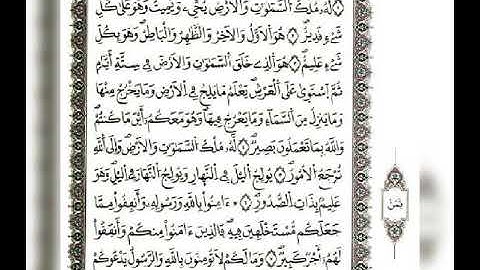 لَهُۥ مُلْكُ السَّمَٰوَٰتِ وَالْأَرْضِ يُحْيِۦ وَيُمِيتُ وَهُوَ عَلَىٰ كُلِّ
شَےْءٍ قَدِيرٌ هُوَ الْأَوَّلُ وَالْأَخِرُ وَالظَّٰهِرُ وَالْبَاطِنُ وَهُوَ بِكُلِّ
شَےْءٍ عَلِيمٌ هُوَ الذِے خَلَقَ السَّمَٰوَٰتِ وَالْأَرْضَ فِے سِتَّةِ أَيَّامٍ
ثُمَّ اَسْتَوَىٰ عَلَى الْعَرْشِ يَعْلَمُ مَا يَلِجُ فِے الْأَرْضِ وَمَا يَخْرُجُ مِنْهَا
وَمَا يَنزِلُ مِنَ السَّمَآءِ وَمَا يَعْرُجُ فِيهَا وَهُوَ مَعَكُمُۥ أَيْنَ مَا كُنتُمْ
وَاللَّهُ بِمَا تَعْمَلُونَ بَصِيرٌ لَهُۥ مُلْكُ السَّمَٰوَٰتِ وَالْأَرْضِ وَإِلَى اللَّهِ
تُرْجَعُ الْأُمُورُ يُولِجُ اليْلَ فِے النَّهَارِ وَيُولِجُ النَّهَارَ فِے اليْلِ وَهُوَ
عَلِيمٌ بِذَاتِ الصُّدُورِ ءَامِنُوا بِاللَّهِ وَرَسُولِهِۦ وَأَنفِقُوا مِمَّا
جَعَلَكُم مُّسْتَخْلَفِينَ فِيهِ فَالذِينَ ءَامَنُوا مِنكُمْ وَأَنفَقُوا
لَهُمُۥ أَجْرٌ كَبِيرٌ وَمَا لَكُمْ لَا تُؤْمِنُونَ بِاللَّهِ وَالرَّسُولُ يَدْعُوكُمْ
ثمن